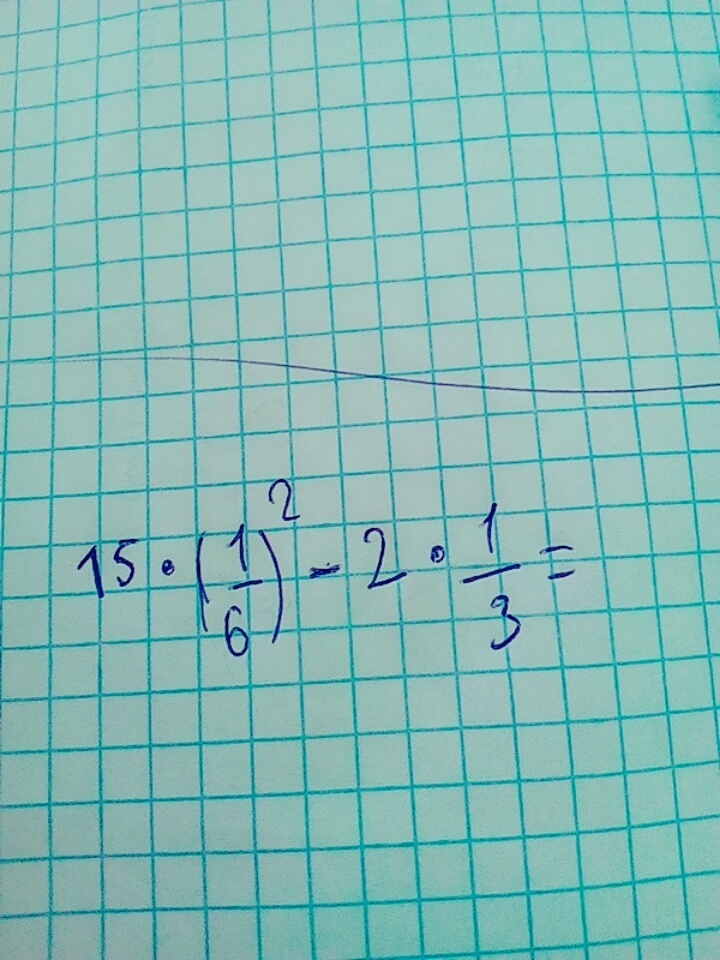 15 · (1/6)² - 2 · 1/3 =